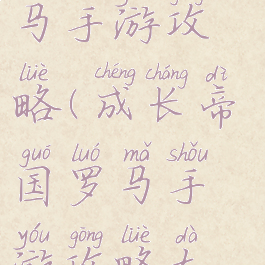 马手游攻
lüè chéng cháng dì
略(成长帝
guó luó mǎ shǒu
国罗马手
yóu gōng lüè dà
游攻略大